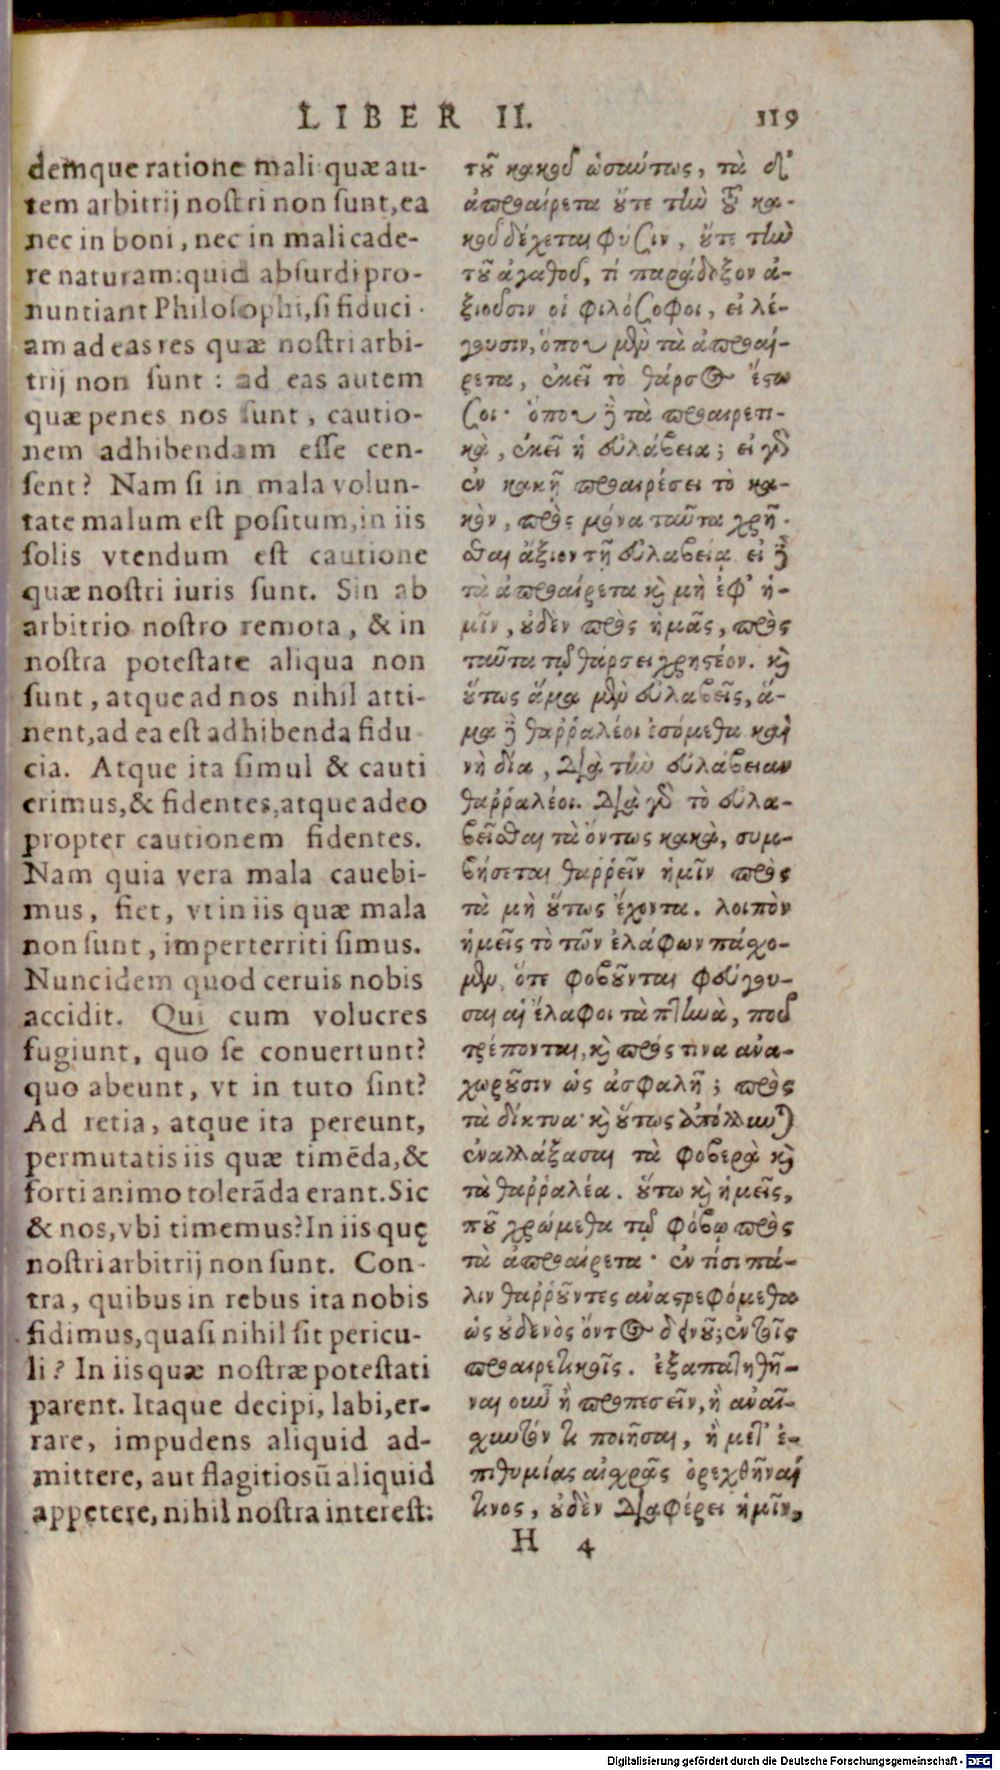 LIBER II. 119
demque ratione mali: quæ au-
tem arbitrij nostri non sunt, ea
nec in boni, nec in mali cade-
re naturam: quid absurdi pro-
nuntiant Philosophi, si fiduci-
am ad eas res quæ nostri arbi-
trij non sunt: ad eas autem
quæ penes nos sunt, cautio-
nem adhibendam esse cen-
sent? Nam si in mala volun-
tate malum est positum, in iis
solis vtendum est cautione
quæ nostri iuris sunt. Sin ab
arbitrio nostro remota, & in
nostra potestate aliqua non
sunt, atque ad nos nihil atti-
nent, ad ea est adhibenda fidu
cia. Atque ita simul & cauti
erimus, & fidentes, atque adeo
propter cautionem fidentes.
Nam quia vera mala cauebi-
mus, fiet, vt in iis quæ mala
non sunt, imperterriti simus.
Nunc idem quod ceruis nobis
accidit. Qui cum volucres
fugiunt, quo se conuertunt?
quo abeunt, vt in tuto sint?
Ad retia, atque ita pereunt,
permutatis iis quæ timēda, &
forti animo tolerāda erant. Sic
& nos, vbi timemus? In iis quę
nostri arbitrij non sunt. Con-
tra, quibus in rebus ita nobis
fidimus, quasi nihil sit pericu-
li? In iis quæ nostræ potestati
parent. Itaque decipi, labi, er-
rare, impudens aliquid ad-
mittere, aut flagitiosū aliquid
appetere, nihil nostra interest:
τοῦ κακοῦ ὡσαύτως, τὰ δ'
ἀπροαίρετα οὔτε τὴν τοῦ κα-
κοῦ δέχεται φύσιν, οὔτε τὴν
τοῦ ἀγαθοῦ, τί παράδοξον ἀ-
ξιοῦσιν οἱ φιλόσοφοι, εἰ λέ-
γουσιν, ὅπου μὲν τὰ ἀπροαί-
ρετα, ἐκεῖ τὸ θάρσος ἔστω
σοι· ὅπου δὲ τὰ προαιρετι-
κὰ, ἐκεῖ ἡ εὐλάβεια; εἰ γὰρ
ἐν κακῇ προαιρέσει τὸ κα-
κὸν, πρὸς μόνα ταῦτα χρῆ-
σθαι ἄξιον τῇ εὐλαβείᾳ. εἰ δὲ
τὰ ἀπροαίρετα καὶ μὴ ἐφ' ἡ-
μῖν, οὐδὲν πρὸς ἡμᾶς, πρὸς
ταῦτα τῷ θάρσει χρηστέον. καὶ
οὕτως ἅμα μὲν εὐλαβεῖς, ἅ-
μα δὲ θαῤῥαλέοι ἐσόμεθα καὶ
νὴ δία, διὰ τὴν εὐλάβειαν
θαῤῥαλέοι. διὰ γὰρ τὸ εὐλα-
βεῖσθαι τὰ ὄντως κακὰ, συμ-
βήσεται θαῤῥεῖν ἡμῖν πρὸς
τὰ μὴ οὕτως ἔχοντα. λοιπὸν
ἡμεῖς τὸ τῶν ἐλάφων πάσχο-
μεν, ὅτε φοβοῦνται φεύγου-
σαι αἱ ἔλαφοι τὰ πτηνὰ, ποῦ
τρέπονται, καὶ πρός τινα ἀνα-
χωροῦσιν ὡς ἀσφαλῆ; πρὸς
τὰ δίκτυα· καὶ οὕτως ἀπόλλυνται
ἐναλλάξασαι τὰ φοβερὰ καὶ
τὰ θαῤῥαλέα. οὕτω καὶ ἡμεῖς,
ποῦ χρώμεθα τῷ φόβῳ πρὸς
τὰ ἀπροαίρετα· ἐν τίσι πά-
λιν θαῤῥοῦντες ἀναστρεφόμεθα
ὡς οὐδενὸς ὄντος δεινοῦ; ἐν τοῖς
προαιρετικοῖς. ἐξαπατηθῆ-
ναι οὖν ἢ προπεσεῖν, ἢ ἀναί-
σχυντόν τι ποιῆσαι, ἢ μετ' ἐ-
πιθυμίας αἰσχρᾶς ὀρεχθῆναί
τινος, οὐδὲν διαφέρει ἡμῖν,
H 4
Digitalisierung gefördert durch die Deutsche Forschungsgemeinschaft - DFG